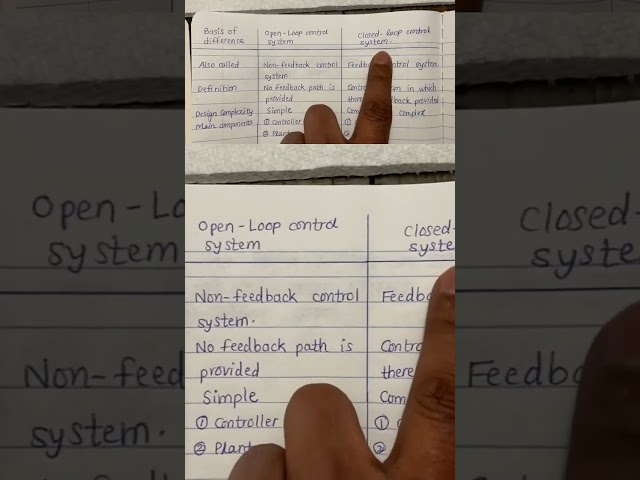 Basis of difference
Open-Loop control system
Closed-loop control system.
Also called
Non-feedback control system.
Feedb control system
Definition
No feedback path is provided
Contr in which
there back provided
Design Complexity
Simple
Com complex
Main components
① Controller
①
② Plant
②
Open-Loop control
system
Closed-
syste
Non-feedback control
system.
Feedb
No feedback path is
provided
Contro
there
Simple
Com
① Controller
①
② Plant
②
Open-Lo
system
Non-feed
system.
Closed-
system
Feedba